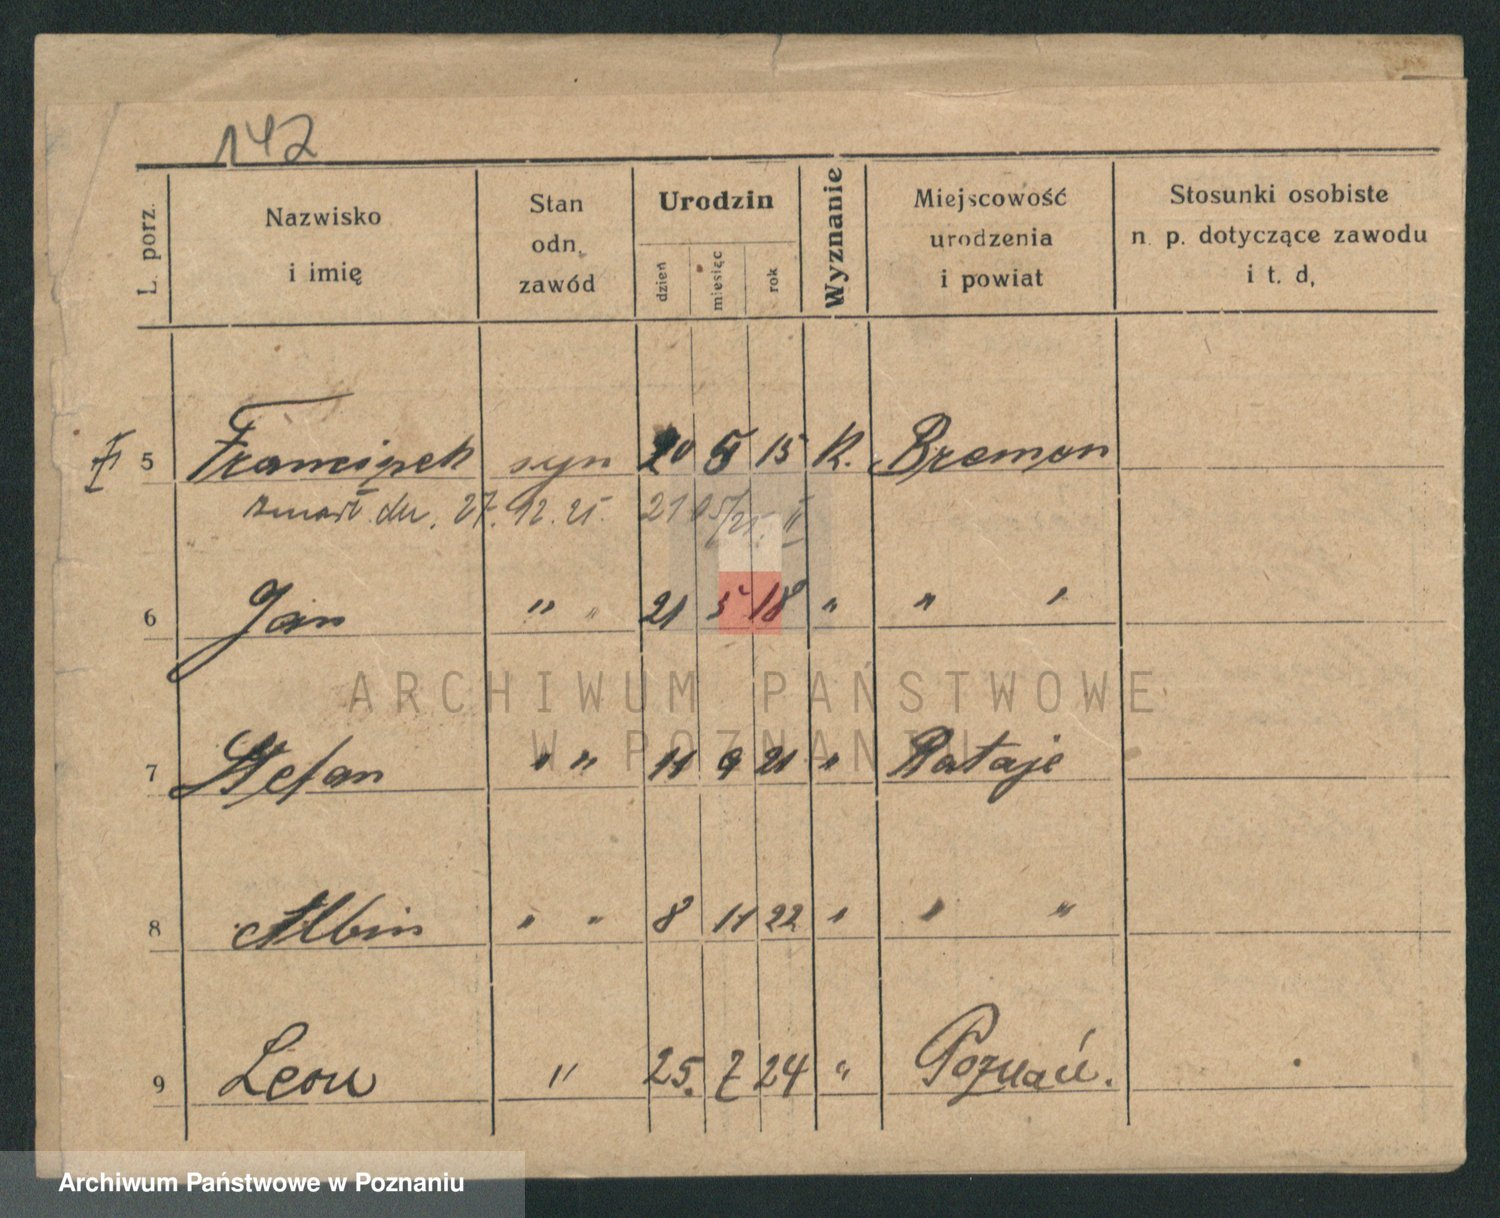 142
L. porz.
Nazwisko
i imię
Stan
odn.
zawód
Urodzin
dzień
miesiąc
rok
Wyznanie
Miejscowość
urodzenia
i powiat
Stosunki osobiste
n. p. dotyczące zawodu
i t. d,
5 Franciszek syn 20 5 15 K. Bremen
zmarł dn. 27.12.25.
6 Jan " " 21 5 18 " " "
ARCHIWUM PAŃSTWOWE
W POZNANIU
7 Stefan " " 11 9 21 " Rataje
8 Albin " " 8 11 22 " " "
9 Leon " 25. 7 24 " Poznań.
Archiwum Państwowe w Poznaniu